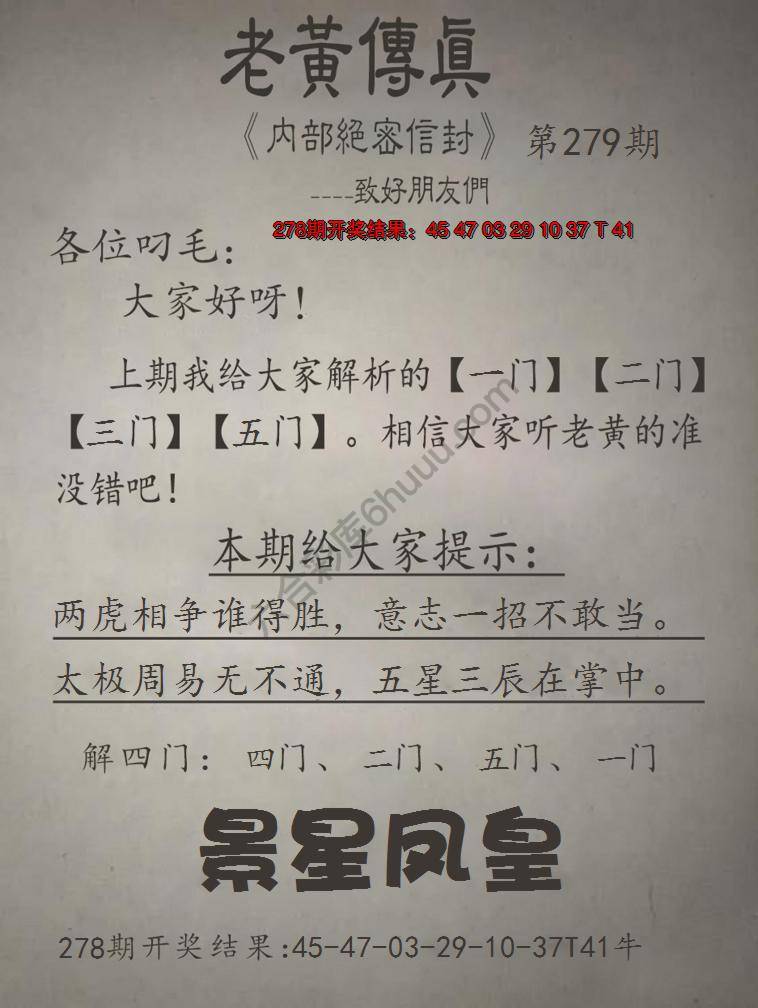 老黃傳眞
《内部絕密信封》 第279期
----致好朋友們
278期开奖结果：45 47 03 29 10 37 T 41
各位叼毛：
大家好呀！
上期我给大家解析的【一门】【二门】
【三门】【五门】。相信大家听老黄的准
没错吧！
本期给大家提示：
两虎相争谁得胜，意志一招不敢当。
太极周易无不通，五星三辰在掌中。
解四门：四门、二门、五门、一门
景星凤皇
278期开奖结果:45-47-03-29-10-37T41牛
六合彩库6huuu.com